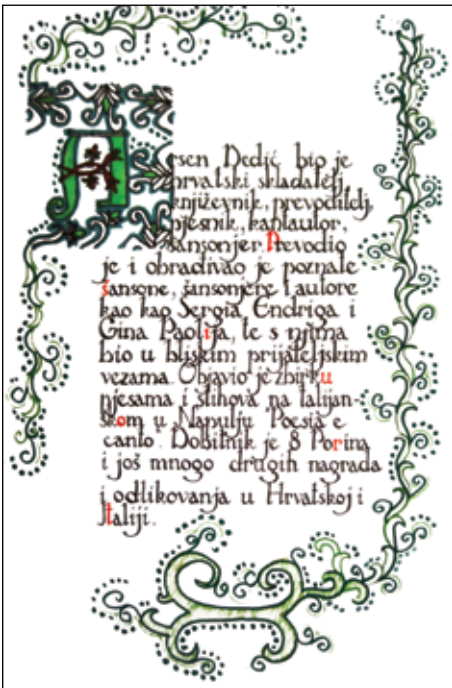 Arsen Dedić bio je
hrvatski skladatelj,
književnik, prevoditelj,
pjesnik, kantautor,
šansonjer. Prevodio
je i obrađivao je poznate
šansone, šansonjere i autore
kao kao Sergia Endriga i
Gina Paolija, te s njima
bio u bliskim prijateljskim
vezama. Objavio je zbirku
pjesama i stihova na talijan-
skom u Napulju Poesia e
canto. Dobitnik je 8 Porina
i još mnogo drugih nagrada
i odlikovanja u Hrvatskoj i
Italiji.